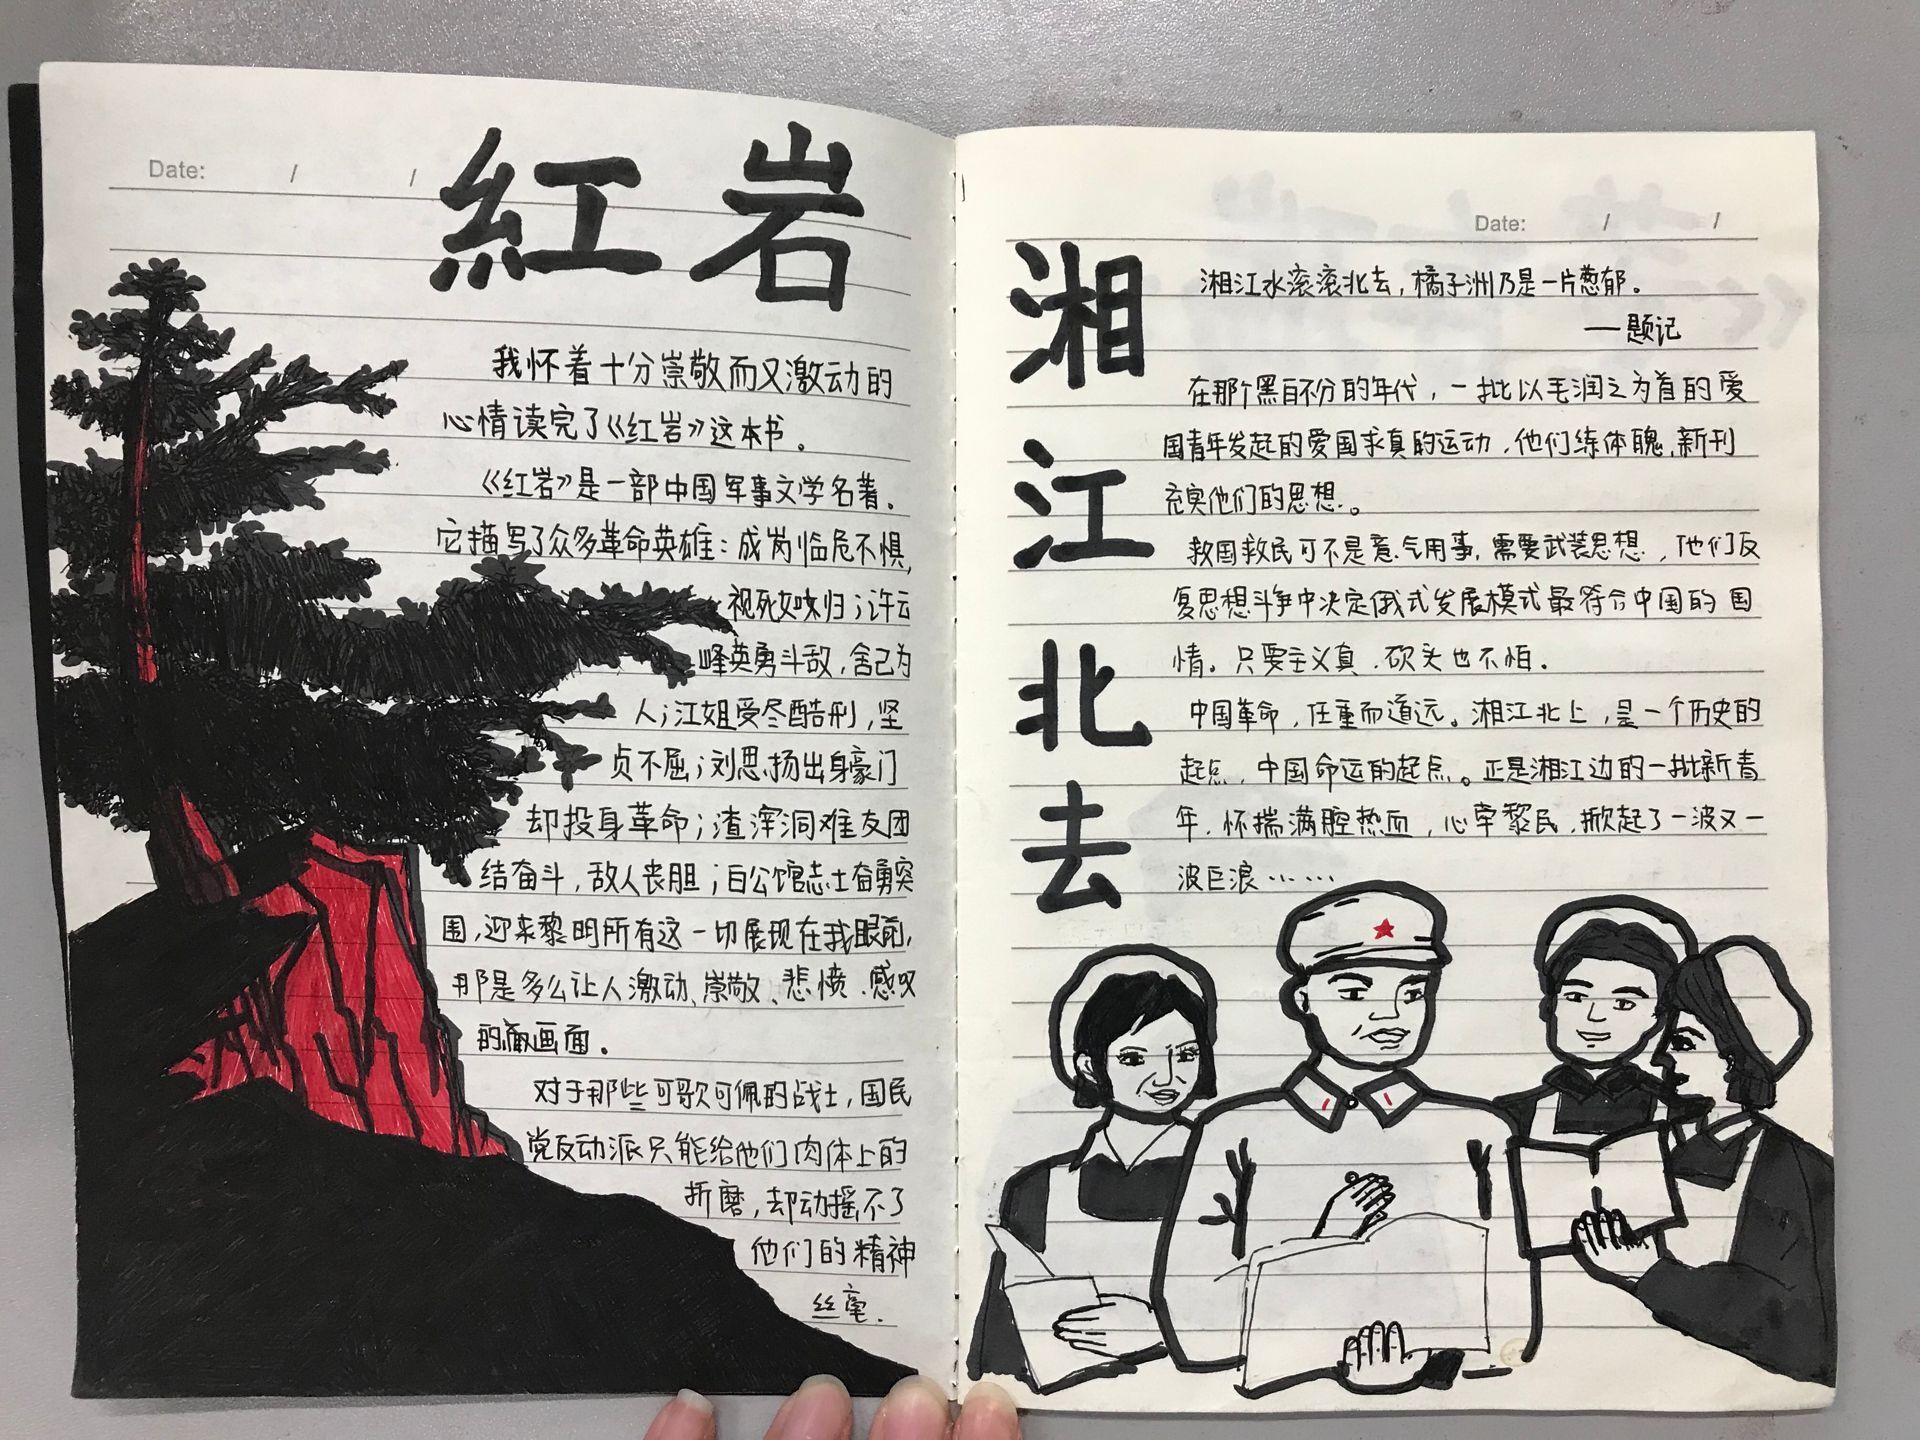 Date: / /
紅岩
我怀着十分崇敬而又激动的
心情读完了《红岩》这本书。
《红岩》是一部中国军事文学名著。
它描写了众多革命英雄：成岗临危不惧，
视死如归；许云
峰英勇斗敌，舍己为
人；江姐受尽酷刑，坚
贞不屈；刘思扬出身豪门
却投身革命；渣滓洞难友团
结奋斗，敌人丧胆；白公馆志士奋勇突
围，迎来黎明所有这一切展现在我眼前，
那是多么让人激动、崇敬、悲愤、感叹
的画面。
对于那些可歌可佩的战士，国民
党反动派只能给他们肉体上的
折磨，却动摇不了
他们的精神
丝毫.
Date: / /
湘江北去
湘江水滚滚北去，橘子洲乃是一片葱郁。
—题记
在那个黑白不分的年代，一批以毛润之为首的爱
国青年发起的爱国求真的运动，他们练体魄，新刊
充实他们的思想。
救国救民可不是意气用事，需要武装思想，他们反
复思想斗争中决定俄式发展模式最符合中国的国
情。只要主义真，砍头也不怕。
中国革命，任重而道远。湘江北上，是一个历史的
起点，中国命运的起点。正是湘江边的一批新青
年，怀揣满腔热血，心牵黎民，掀起了一波又一
波巨浪……